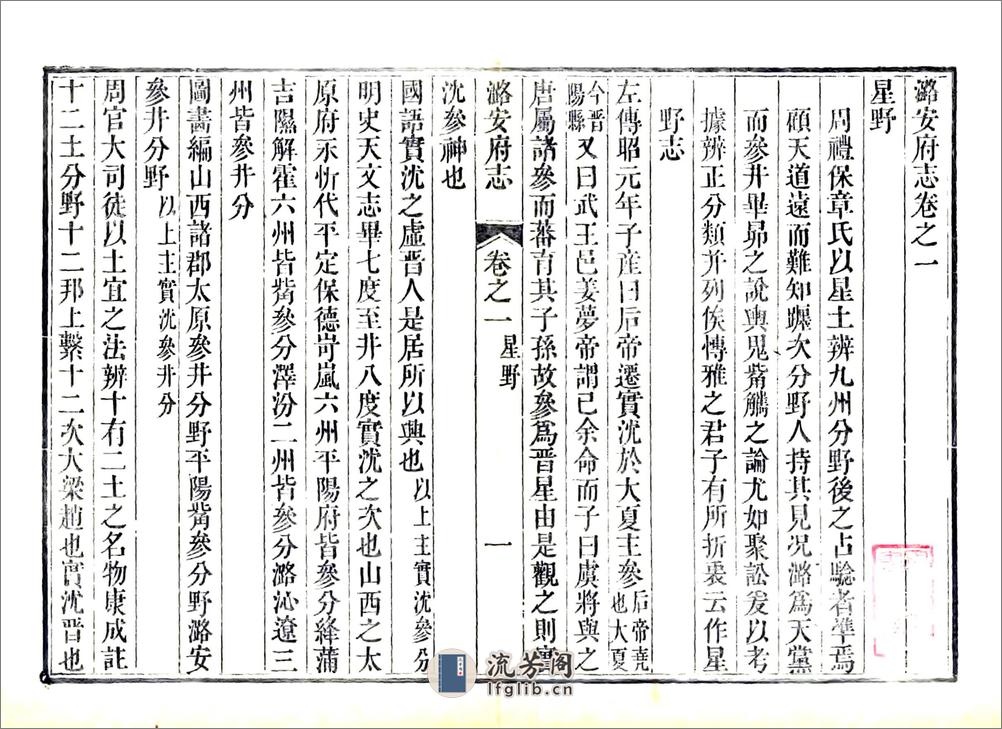 潞安府志卷之一
星野
周禮保章氏以星土辨九州分野後之占驗者準焉
顧天道遠而難知躔次分野人持其見况潞爲天黨
而參井畢昴之說與鬼觜觿之論尤如聚訟爰以考
據辨正分類并列俟博雅之君子有所折衷云作星
野志
左傳昭元年子產曰后帝遷實沈於大夏主參后帝堯也大夏
今晉陽縣又曰武王邑姜夢帝謂己余命而子曰虞將與之
唐屬諸參而蕃育其子孫故參爲晉星由是觀之則實
潞安府志 卷之一 星野 一
沈參神也
國語實沈之虛晉人是居所以興也以上主實沈參分
明史天文志畢七度至井八度實沈之次也山西之太
原府示忻代平定保德岢嵐六州平陽府皆參分絳蒲
吉隰解霍六州皆觜參分澤汾二州皆參分潞沁遼三
州皆參井分
圖書編山西諸郡太原參井分野平陽觜參分野潞安
參井分野以上主實沈參井分
周官大司徒以土宜之法辨十有二土之名物康成註
十二土分野十二邦上繫十二次大梁趙也實沈晉也
流芳阁
lfglib.cn